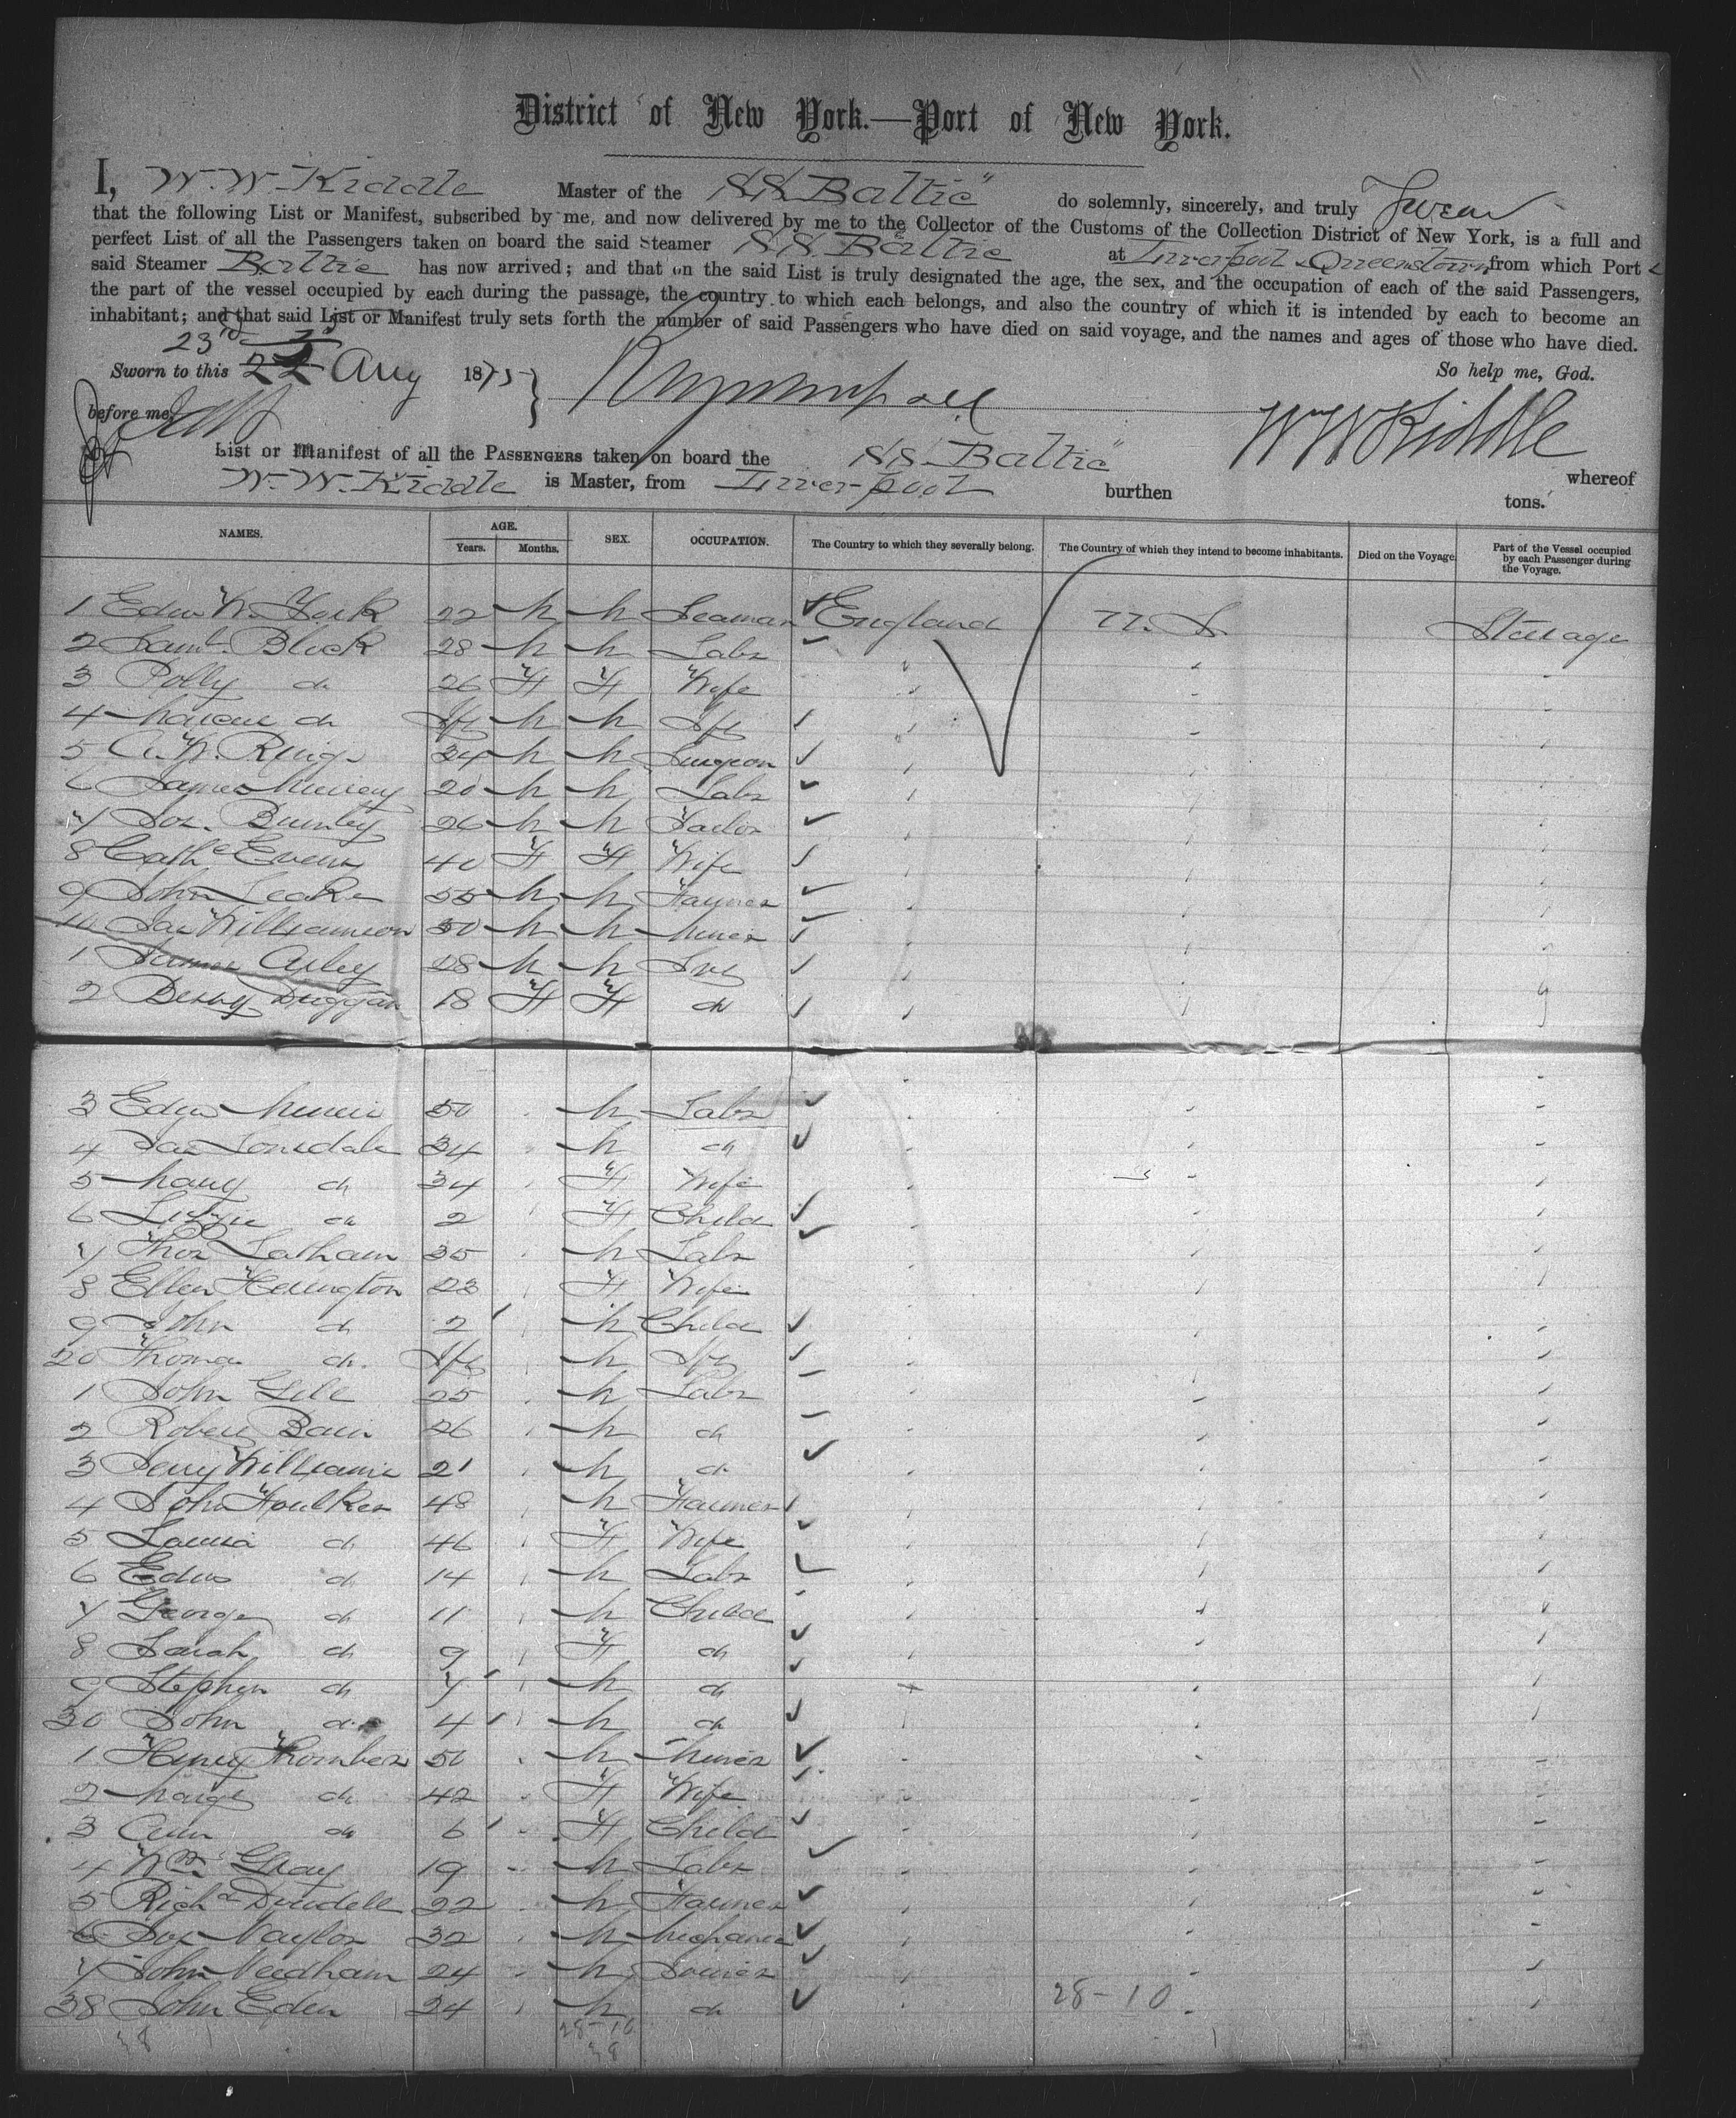 District of New York.—Port of New York.
I, W. W. Kiddle Master of the SS "Baltic" do solemnly, sincerely, and truly Swear
that the following List or Manifest, subscribed by me, and now delivered by me to the Collector of the Customs of the Collection District of New York, is a full and
perfect List of all the Passengers taken on board the said Steamer SS. Baltic at Liverpool & Queenstown from which Port
said Steamer Baltic has now arrived; and that on the said List is truly designated the age, the sex, and the occupation of each of the said Passengers,
the part of the vessel occupied by each during the passage, the country to which each belongs, and also the country of which it is intended by each to become an
inhabitant; and that said List or Manifest truly sets forth the number of said Passengers who have died on said voyage, and the names and ages of those who have died.
23rd
Sworn to this 22 Aug 1875 So help me, God.
before me, Wm W Kiddle
List or Manifest of all the PASSENGERS taken on board the SS. Baltic whereof
W. W. Kiddle is Master, from Liverpool burthen tons.
NAMES. AGE. SEX. OCCUPATION. The Country to which they severally belong. The Country of which they intend to become inhabitants. Died on the Voyage. Part of the Vessel occupied by each Passenger during the Voyage.
Years. Months.
1 Edw W. York 22 M M Seaman England U. S. Steerage
2 Saml. Block 28 M M Labr
3 Polly do 26 F F Wife
4 do Inf M M Inf
5 A. W. 34 M M Surgeon
6 James 20 M M Labr
7 Jos. 26 M M Tailor
8 Cathe Evans 40 F F Wife
9 John Leake 55 M M Farmer
10 Jas Williamson 30 M M Miner
1 28 M M
2 Duggan 18 F F do
3 Edw 50 M Labr
4 Jas Lonsdale 34 M do
5 Mary do 34 F Wife
6 Lizzie do 2 F Child
7 Thos Latham 35 M Labr
8 Ellen 23 F Wife
9 John do 2 M Child
20 Thomas do. Inf M Inf
1 John 25 M Labr
2 Robert Bain 26 M do
3 Williams 21 M do
4 John Foulkes 48 M Farmer
5 do 46 F Wife
6 Edw do 14 M Labr
7 George do 11 M Child
8 Sarah do 9 F do
9 Stephen do 7 M do
30 John do 4 M do
1 Henry 50 M Miner
2 do 42 F Wife
3 Ann do 6 F Child
4 Wm. Gray 19 M Labr
5 Richd 22 M Farmer
6 Naylor 32 M Mechanic
7 John Needham 24 M
38 John Eden 24 M do 28-10
28-10